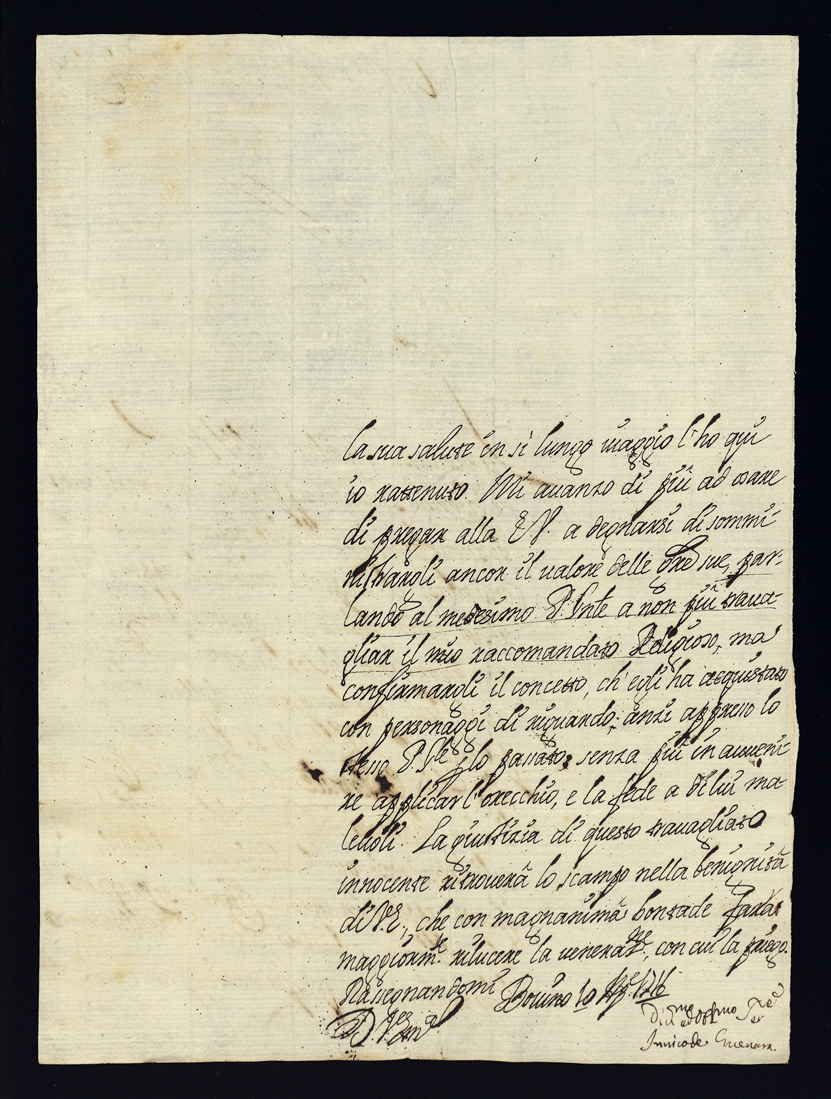 la sua salute in sì lungo viaggio l'ho qui
io rattenuto. Mi avanzo di più ad osare
di pregar alla E.V. a degnarsi di sommi-
nistrargli ancor il valore delle sue, par-
lando al medesimo P. a non più trava-
gliar il mio raccomandato Religioso, ma
confirmargli il concetto, ch'egli ha acquistato
con personaggi di riguardo, anzi appresso lo
stesso P. lo passato, senza più in avveni-
re applicar l'orecchio, e la fede a di lui ma-
levoli. La giustizia di questo travagliato
innocente ritroverà lo scampo nella benignità
di V.E., che con magnanima bontade farà
maggiorm.te rilucere la, con cui la priego.
Rassegnandomi Bovino 10 1716
Di V.
Innico de Guevara.